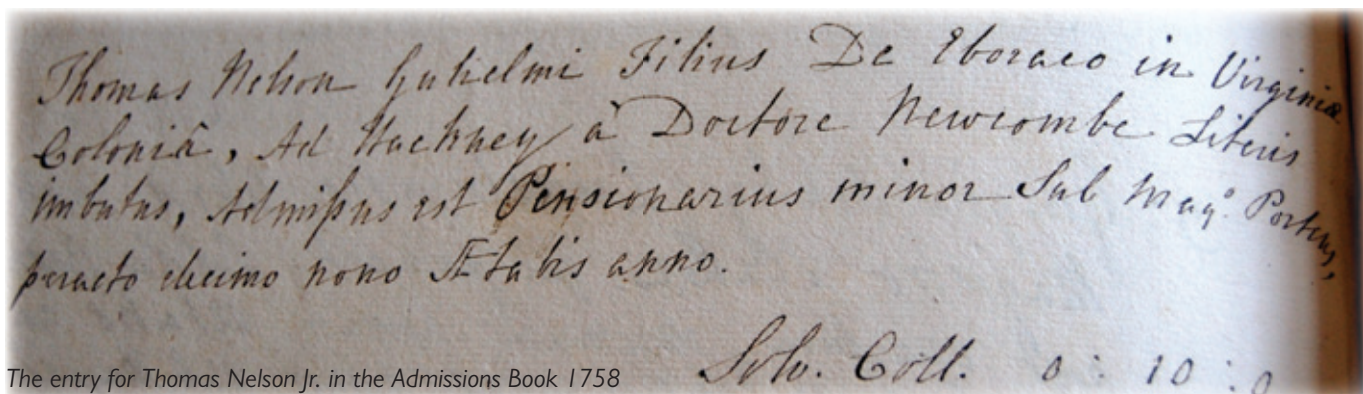 Thomas Nelson Gulielmi Filius De Eboraco in Virginiæ
Coloniâ, Ad Hackney à Doctore Newcombe Literis
imbutus, Admißus est Pensionarius minor Sub Magº. Porteus,
peracto decimo nono Ætatis anno.
Solv. Coll. 0 : 10 : 0
The entry for Thomas Nelson Jr. in the Admissions Book 1758